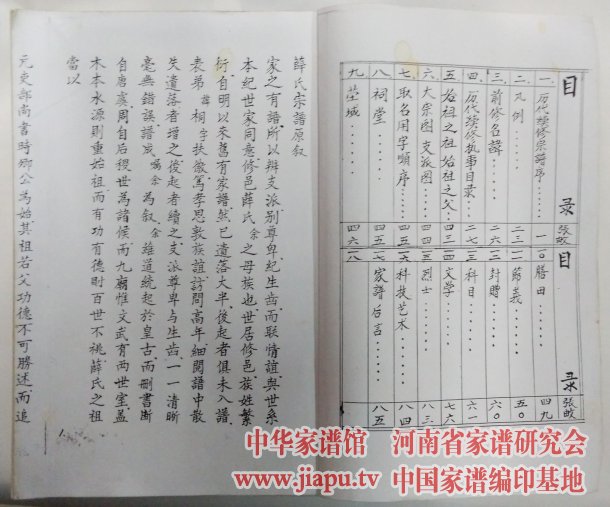 目录 张数
一. 历代續修宗譜序 一
二. 凡例 二三
三. 前修名諱 二六
四. 历代續修执事目录 二七
五. 始祖之祖始祖之父 四三
六. 大宗图支派图 四四
七. 取名用字順序 四五
八. 祠堂 四五
九. 茔城 四六
目录 张数
一〇 膳田 四九
一一 節義 五〇
一二 封贈 六〇
一三 科目 六一
一四 文学 七六
一五 烈士 八三
一六 科技艺术 八四
一七 家譜后言 八五
一八
薛氏宗譜原叙
家之有譜所以辨支派别尊卑紀生齿而联情誼與世系
本紀世家同意修邑薛氏余之母族也世居修邑族姓繁
衍自明以來舊有家譜然已遺落大半後起者俱未入譜
表弟諱桐字扶徽篤孝思敦族誼訪問高年細閱譜中散
失遺落者增之後起者續之支派尊卑与生齿一一清晰
毫無錯誤譜成囑余為叙余雖道統起於皇古而刪書断
自唐虞周自后稷世為諸侯而九廟惟文武有两世室盖
木本水源則重始祖而有功有德則百世不祧薛氏之祖
當以
元吏部尚書時卿公為始其祖若父功德不可勝述而追
中华家谱馆 河南省家谱研究会
www.jiapu.tv 中国家谱编印基地